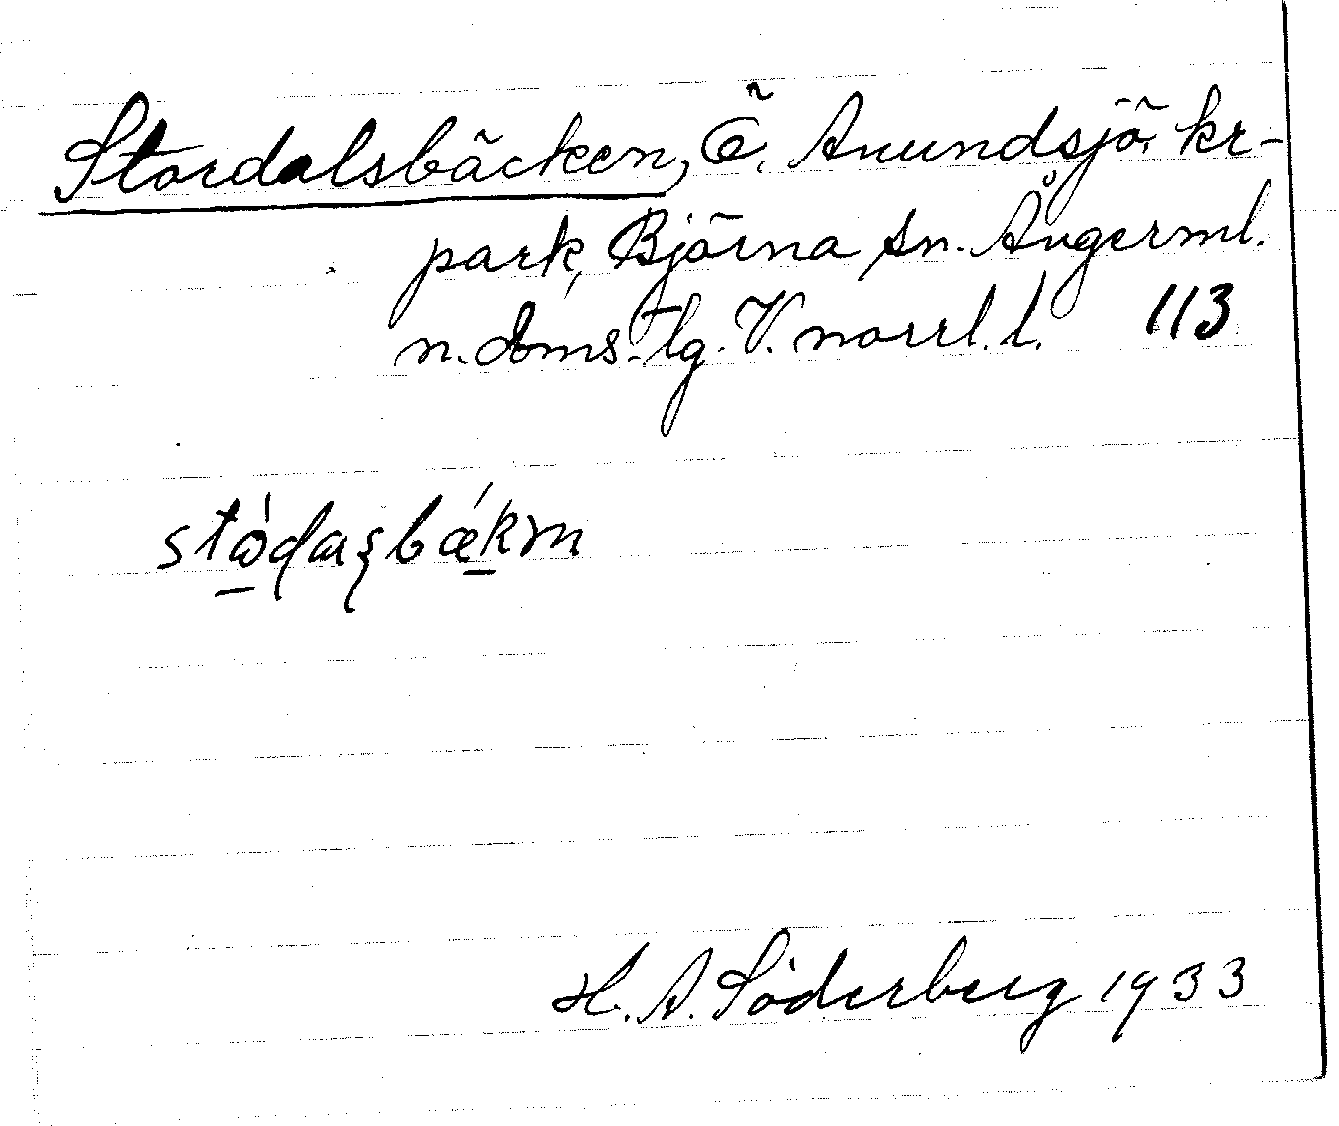 Stordalsbäcken, Ö. Anundsjö kr-
park, Björna sn. Ångerml.
n. doms. lg. V. norrl. l. 113
H. A. Söderberg 1933